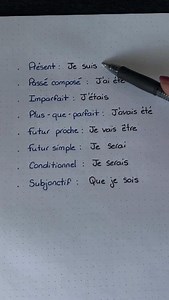 . Présent : Je suis
. Passé composé : J'ai été
. Imparfait : J'étais
. Plus-que-parfait : J'avais été
. Futur proche : Je vais être
. Futur simple : Je serai
. Conditionnel : Je serais
. Subjonctif : Que je sois